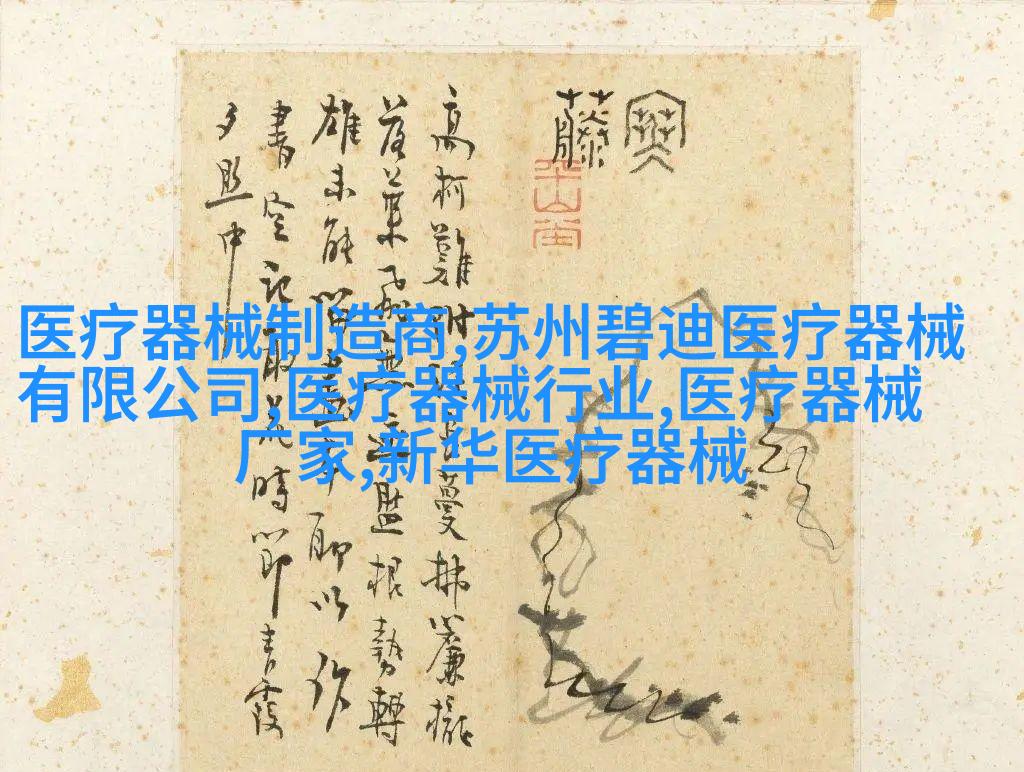 寒藤
高柯難附蔓拂簾櫳
落葉盤根勢轉
雄未能聊以作
書空記取花時節青霞
夕照中
医疗器械制造商,苏州碧迪医疗器械
有限公司,医疗器械行业,医疗器械
厂家,新华医疗器械